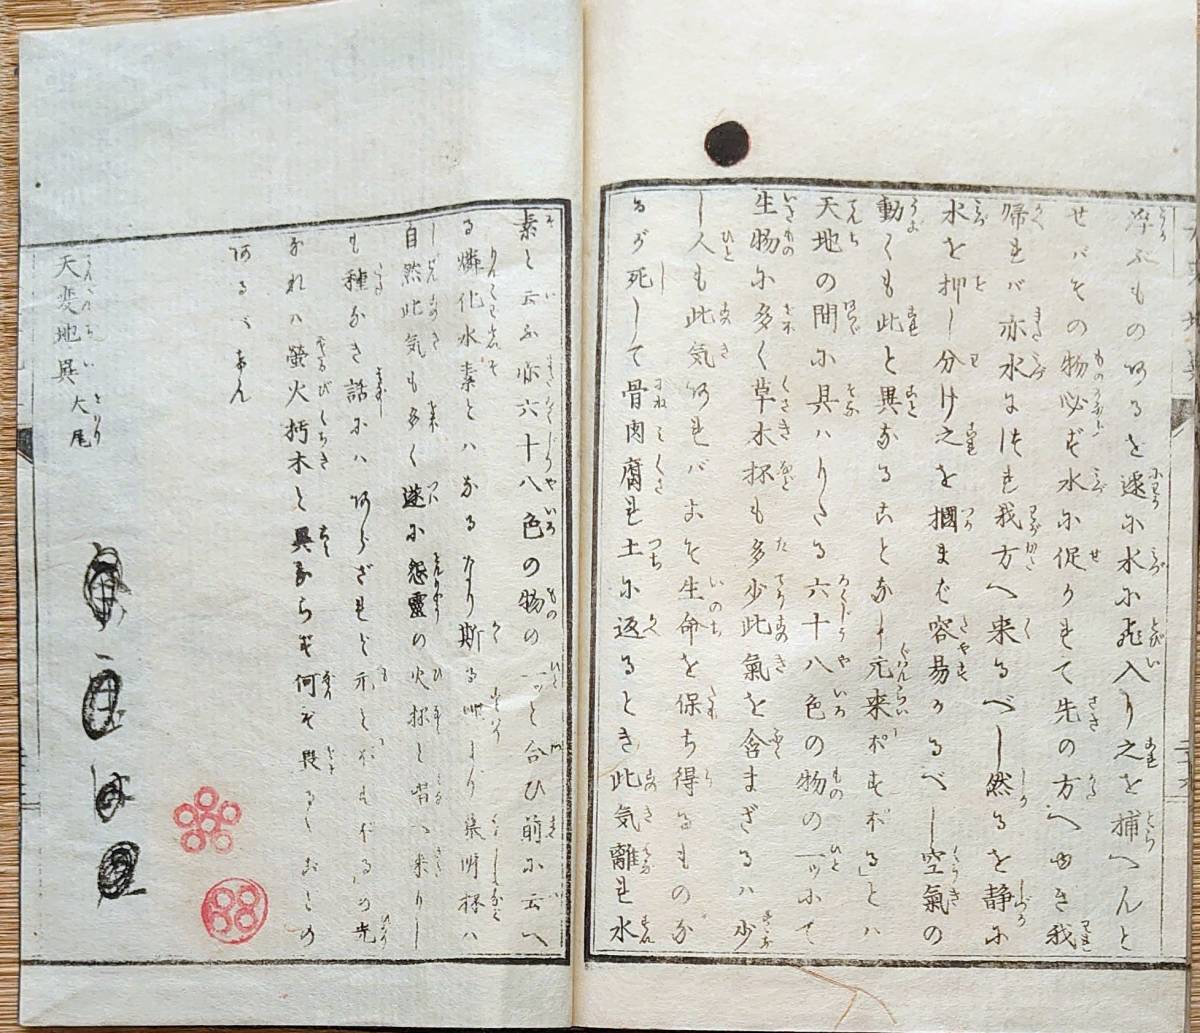 浮ぶものあるを遽に水に飛入り之を捕へんと
せバその物必ず水に促されて先の方へゆき我
帰れバ亦水につれ我方へ来るべし然るを静に
水を押し分け之を掴まば容易かるべし空氣の
動くも此と異なることなし元来ポすポる」とハ
天地の間に具ハりたる六十八色の物の一ッにて
生物に多く草木抔も多少此氣を含まざるハ少
し人も此気あれバこそ生命を保ち得るものが
るが死して骨肉腐れ土に返るとき此気離れ水
素と云ふ亦六十八色の物の一ッと合ひ前に云へ
る燐化水素とハなるなり斯る
自然此気も多く遂に怨靈の火抔と唱へ来りし
も種なき話にハあらざれど
なれハ螢火朽木と異ならず何ぞ畏るゝおとの
あるべけん
天変地異大尾